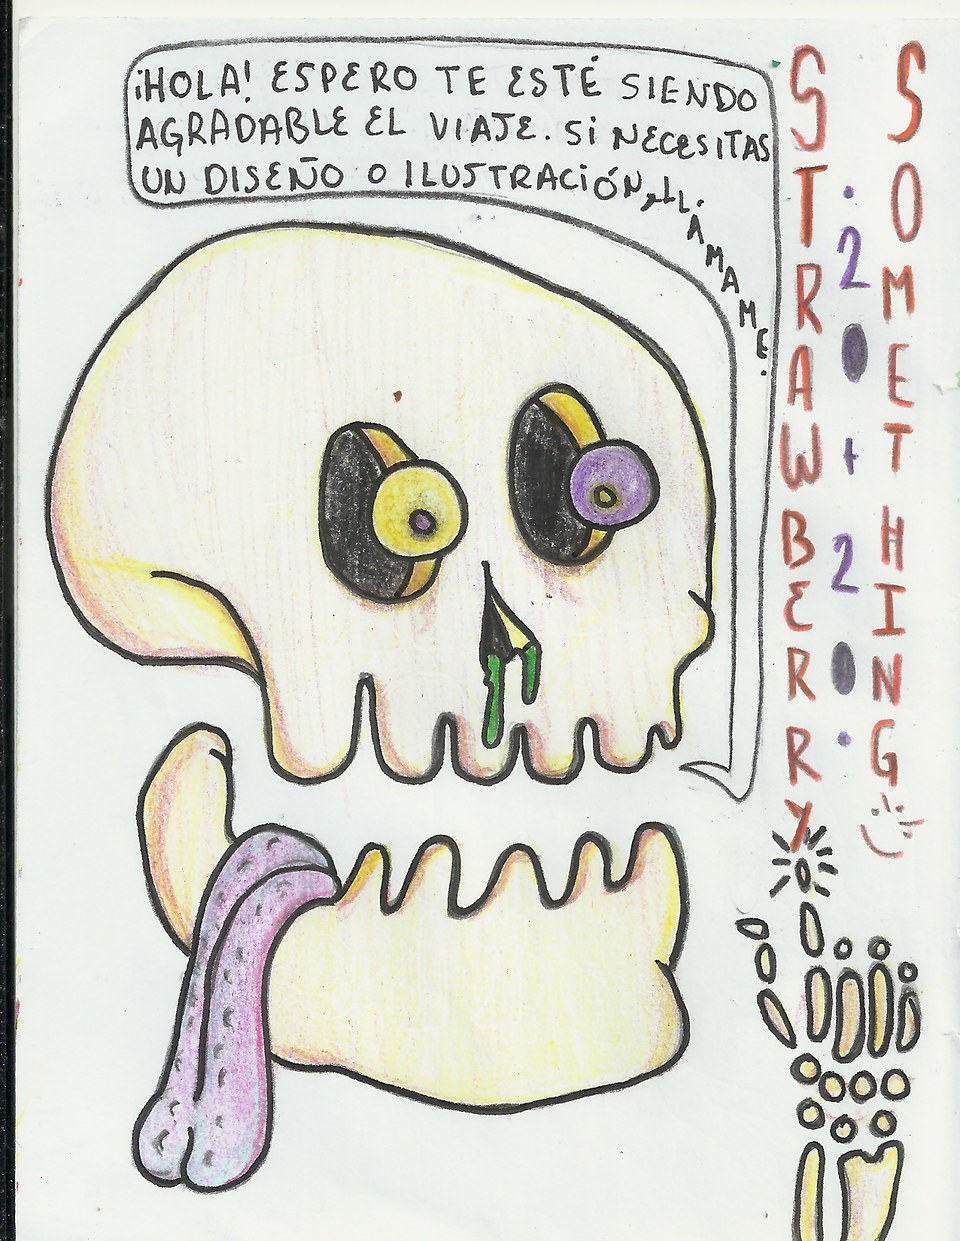 ¡HOLA! ESPERO TE ESTÉ SIENDO
AGRADABLE EL VIAJE. SI NECESITAS
UN DISEÑO O ILUSTRACIÓN, LLÁMAME.
STRAWBERRY
.20+20.
SOMETHING